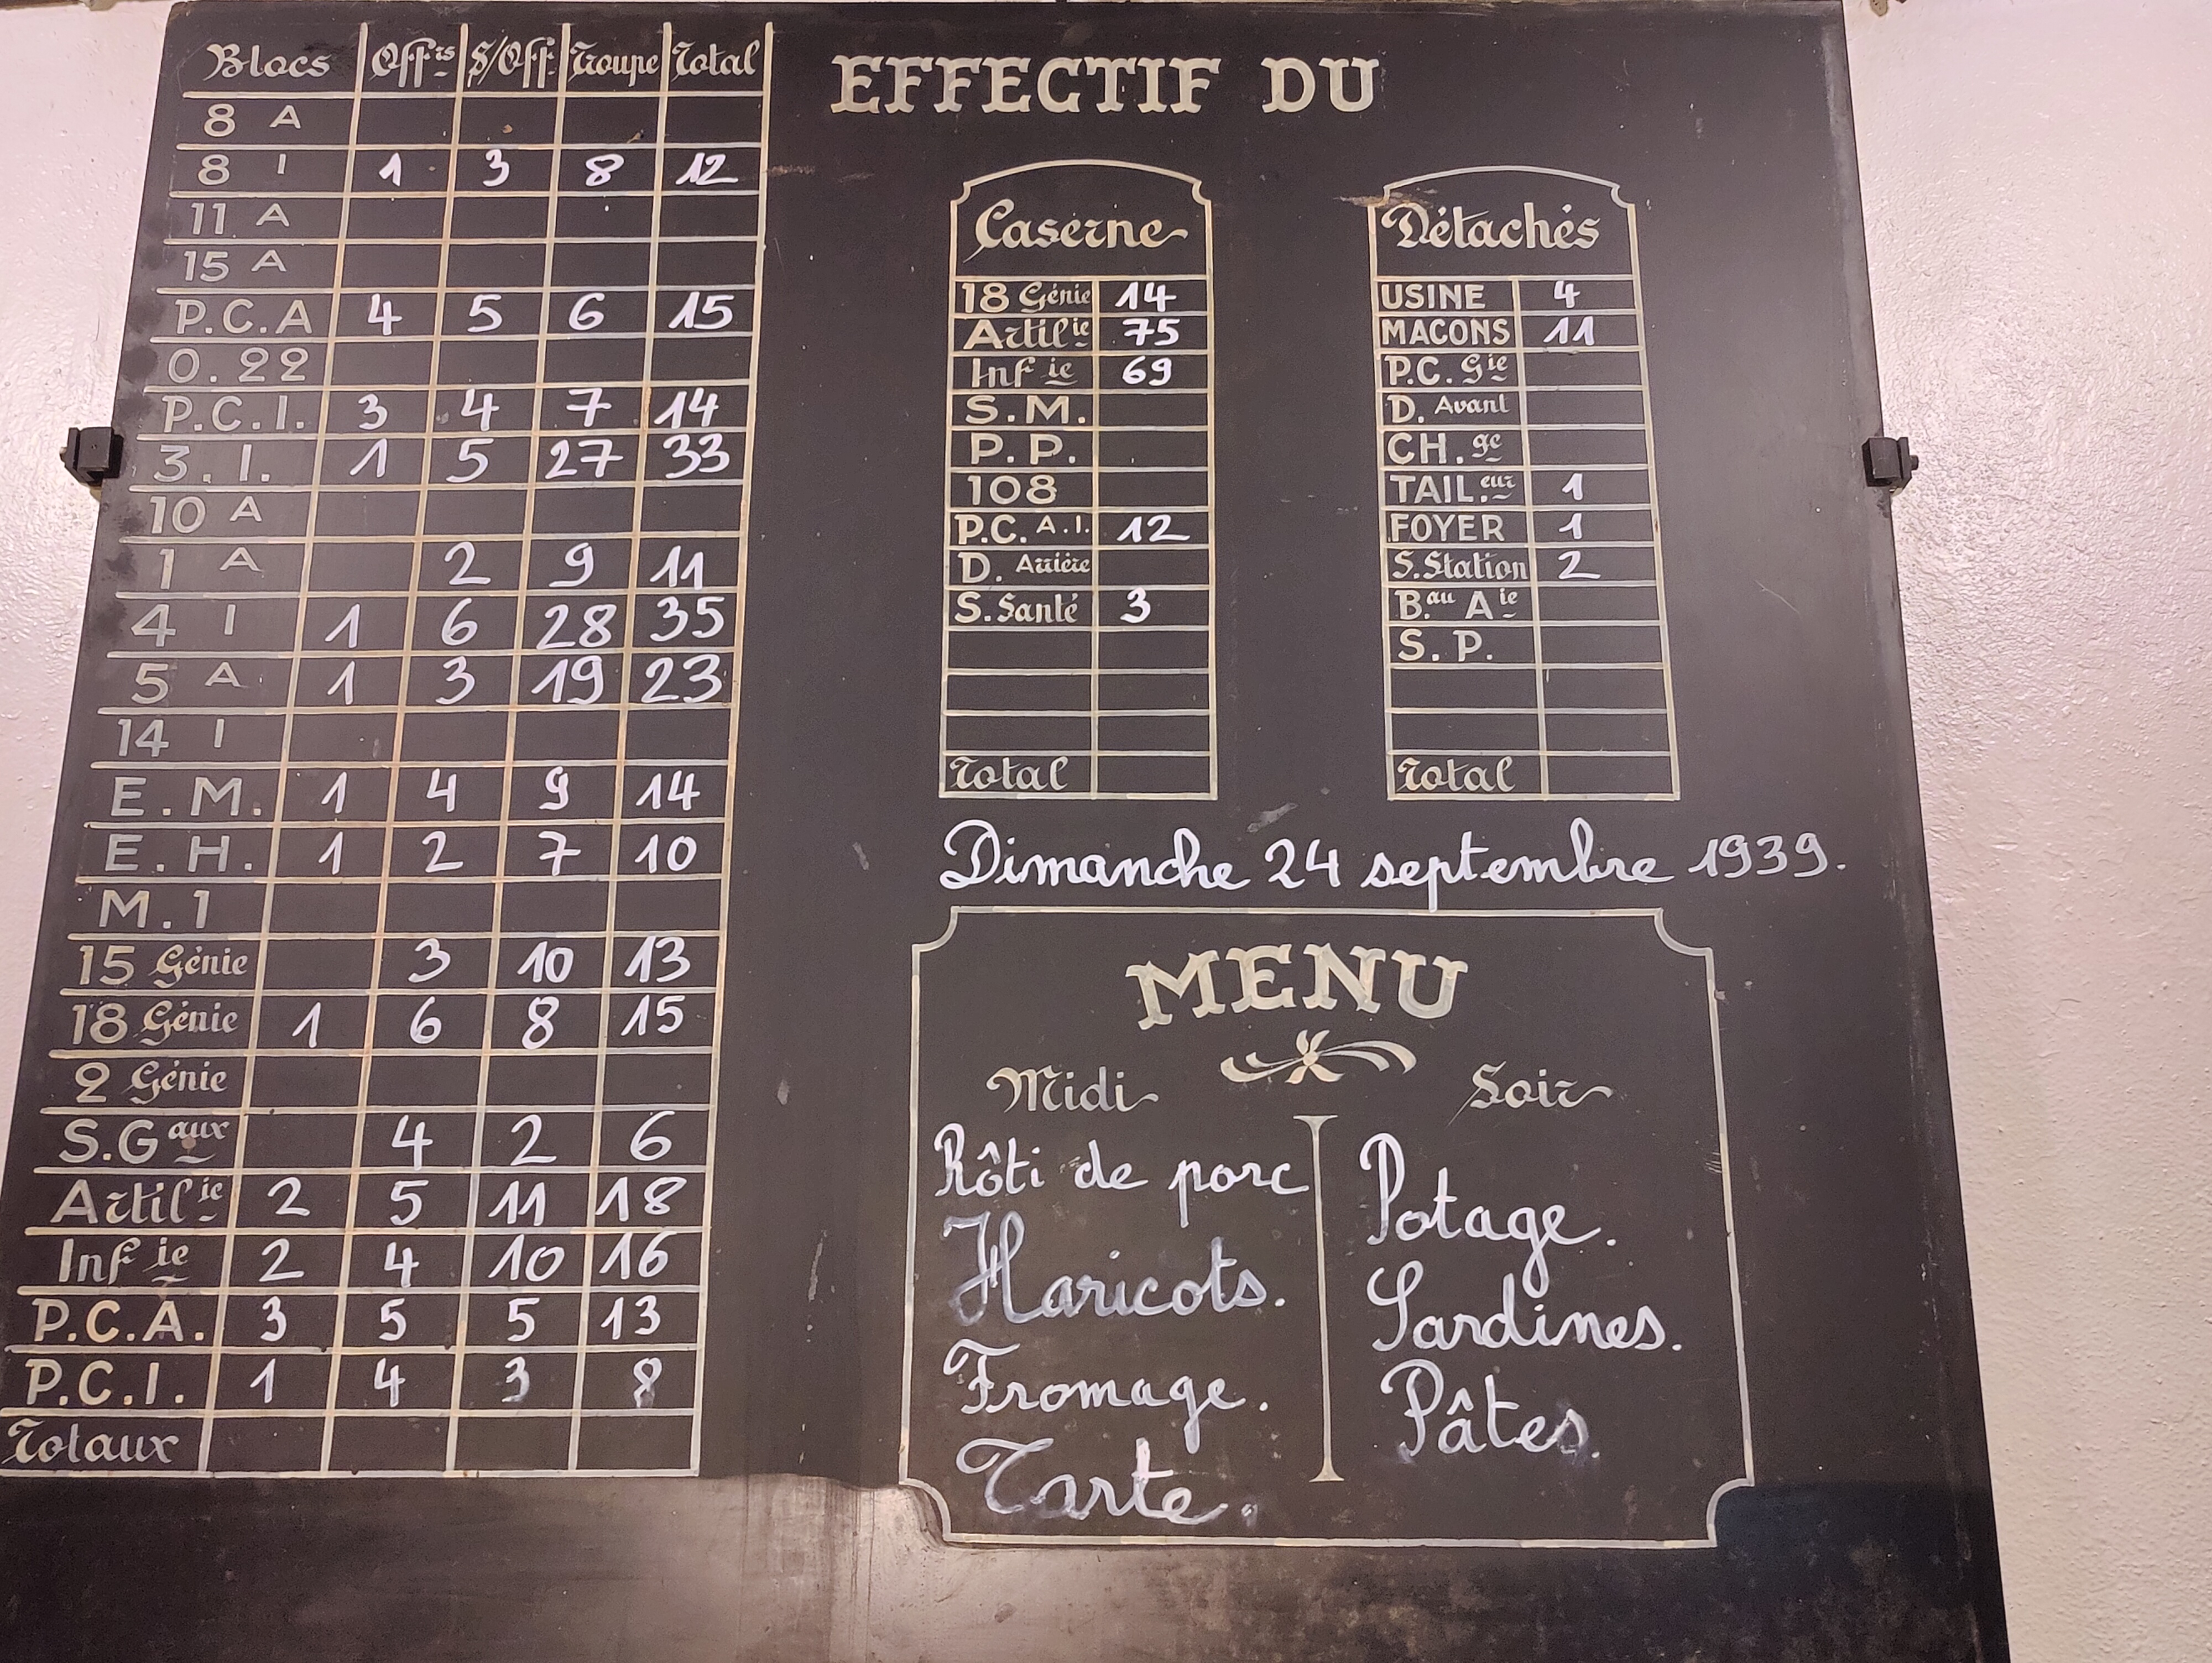 Blocs Offrs S/Off. Troupe Total
8 A
8 I 1 3 8 12
11 A
15 A
P.C.A 4 5 6 15
O.22
P.C.I. 3 4 7 14
3.I. 1 5 27 33
10 A
1 A 2 9 11
4 I 1 6 28 35
5 A 1 3 19 23
14 I
E.M. 1 4 9 14
E.H. 1 2 7 10
M.1
15 Génie 3 10 13
18 Génie 1 6 8 15
2 Génie
S.Gaux 4 2 6
Artilie 2 5 11 18
Infie 2 4 10 16
P.C.A. 3 5 5 13
P.C.I. 1 4 3 8
Totaux
EFFECTIF DU
Caserne
18 Génie 14
Artilie 75
Infie 69
S.M.
P.P.
108
P.C. A.I. 12
D. Arrière
S.Santé 3
Total
Détachés
USINE 4
MACONS 11
P.C. Gie
D. Avant
CH.ge
TAIL.eur 1
FOYER 1
S.Station 2
B.au Aie
S.P.
Total
Dimanche 24 septembre 1939.
MENU
Midi
Rôti de porc
Haricots.
Fromage.
Tarte.
Soir
Potage.
Sardines.
Pâtes.